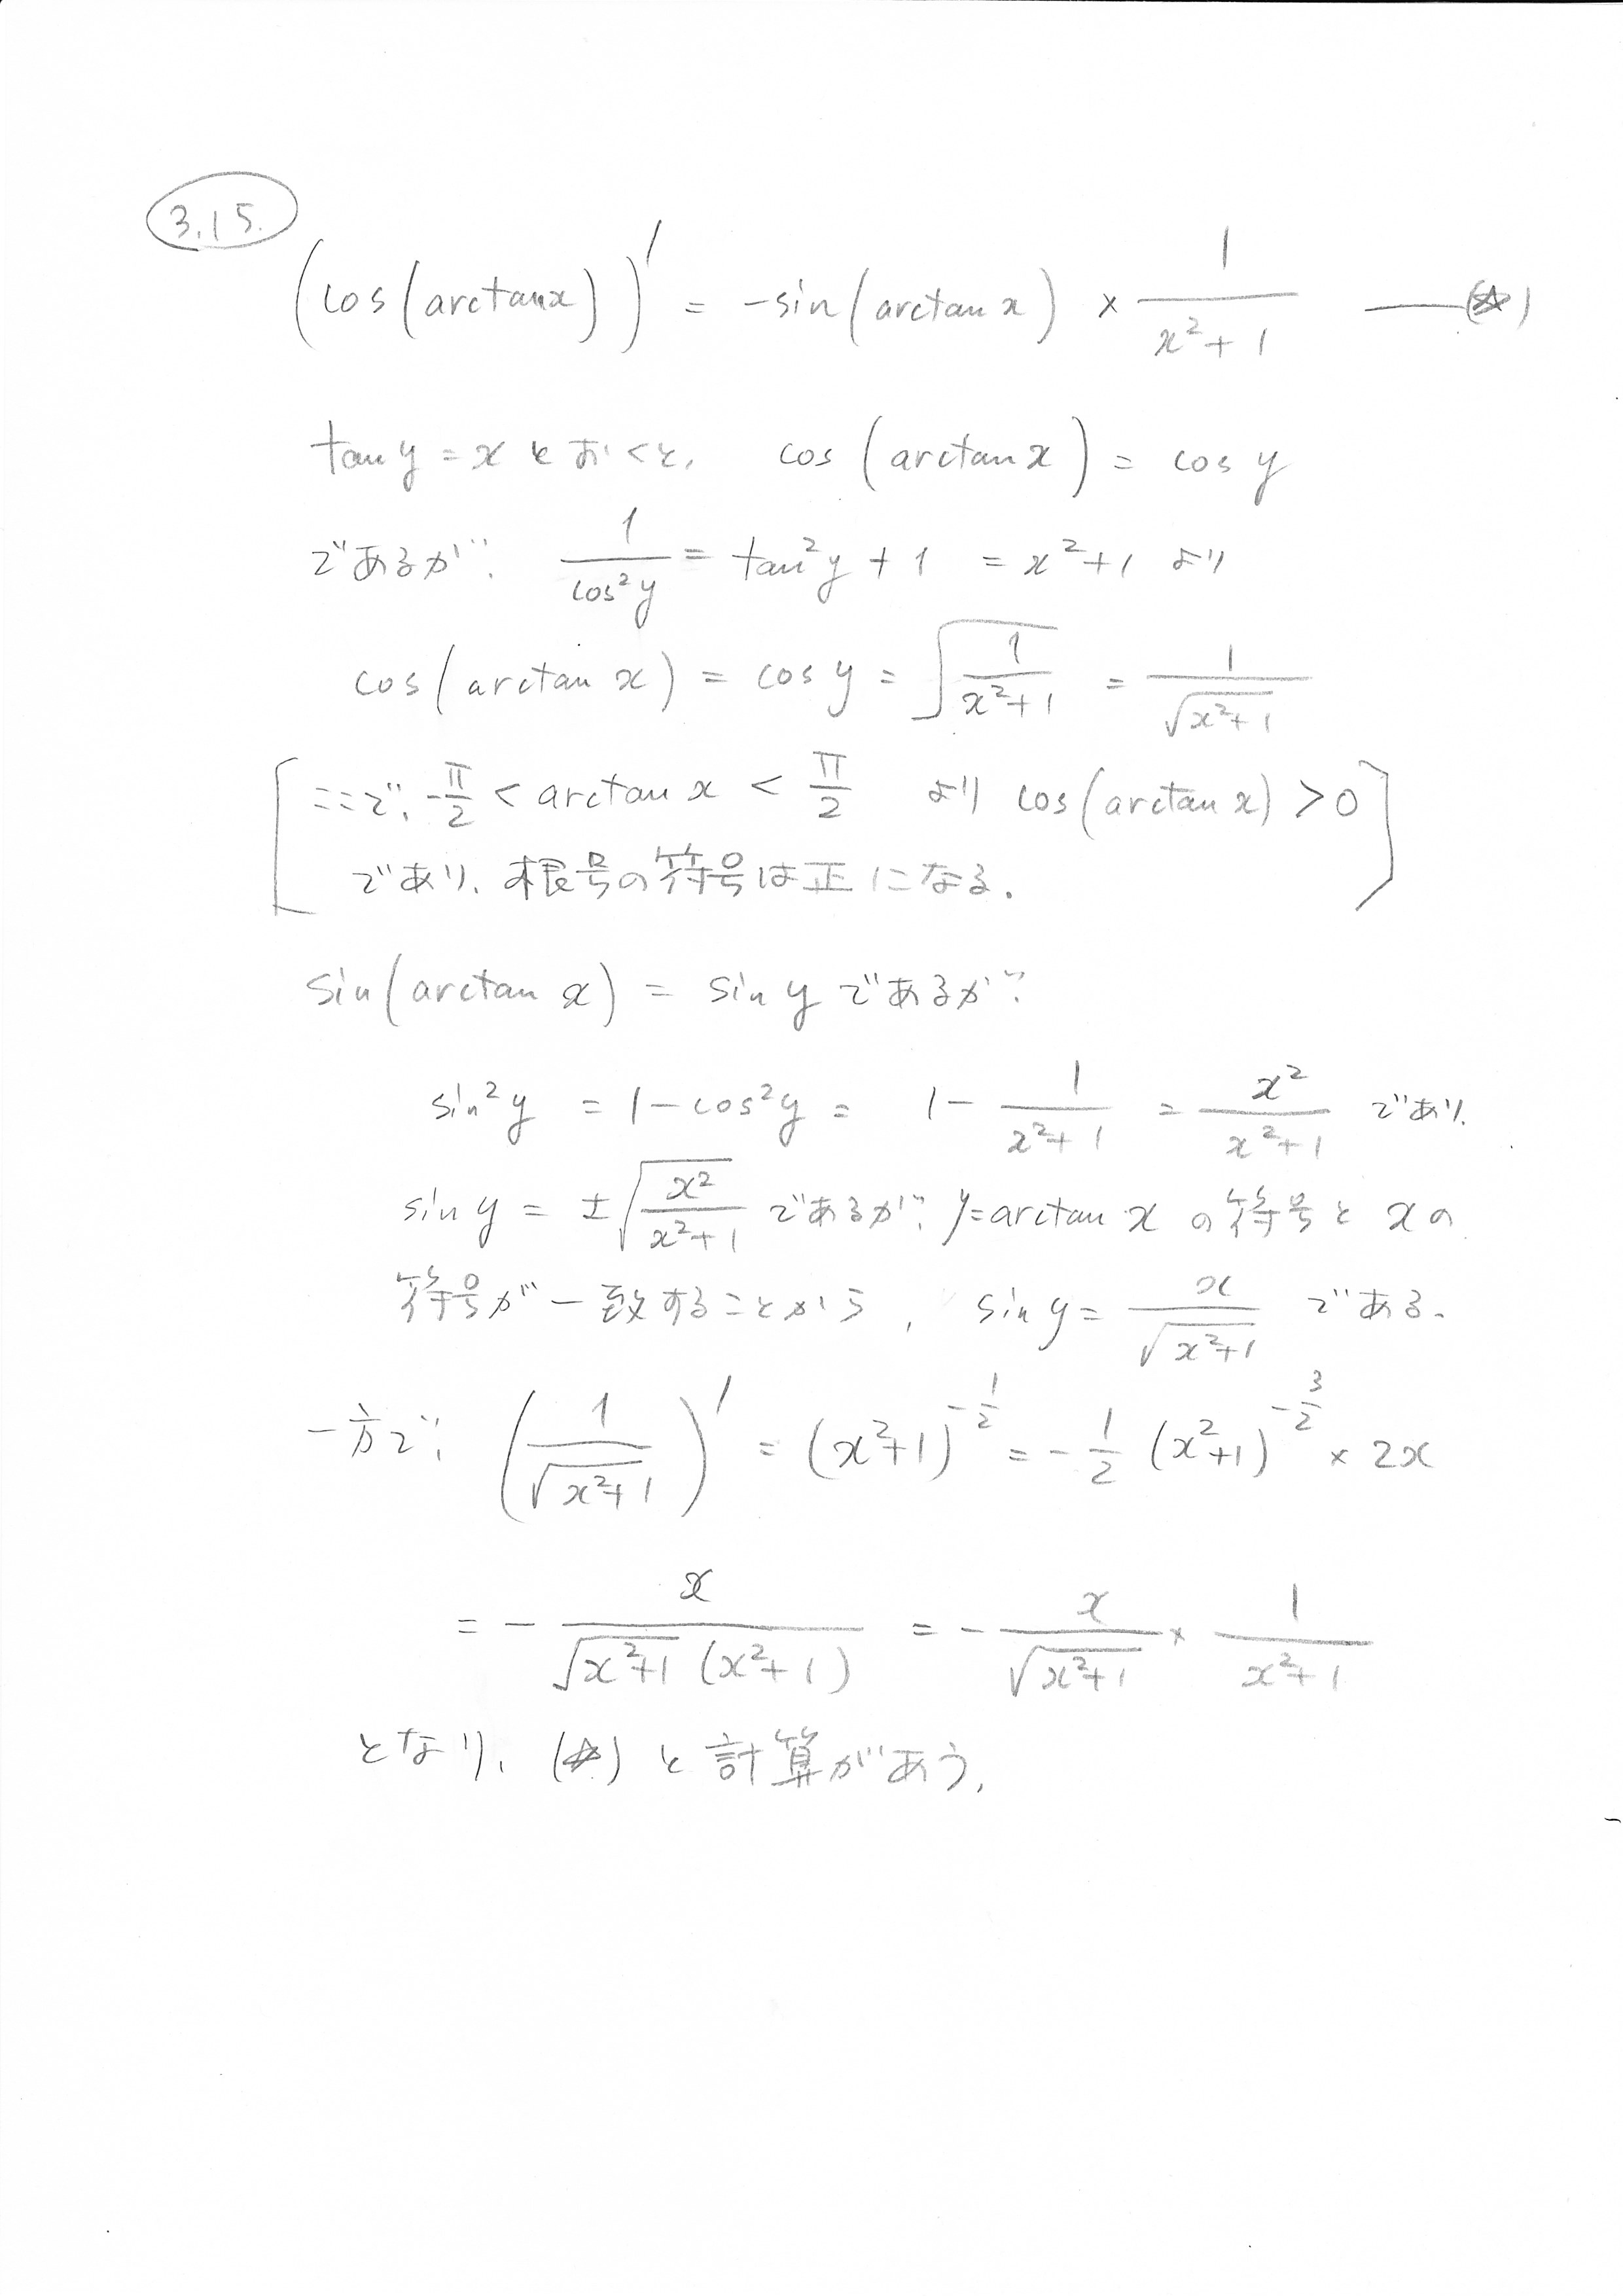 3.15.
(cos(arctan x))′ = -sin(arctan x) × 1/(x²+1) ——(☆)
tan y = x とおくと、 cos(arctan x) = cos y
であるが、 1/cos²y = tan²y + 1 = x²+1 より
cos(arctan x) = cos y = √(1/(x²+1)) = 1/√(x²+1)
[ここで、-π/2 < arctan x < π/2 より cos(arctan x) > 0
であり、根号の符号は正になる.]
sin(arctan x) = sin y であるが、
sin²y = 1-cos²y = 1 - 1/(x²+1) = x²/(x²+1) であり、
sin y = ±√(x²/(x²+1)) であるが、y=arctan x の符号と x の
符号が一致することから, sin y = x/√(x²+1) である.
一方で、 (1/√(x²+1))′ = (x²+1)^(-1/2) = -1/2 (x²+1)^(-3/2) × 2x
= - x/(√(x²+1) (x²+1)) = - x/√(x²+1) × 1/(x²+1)
となり、(☆) と計算があう.